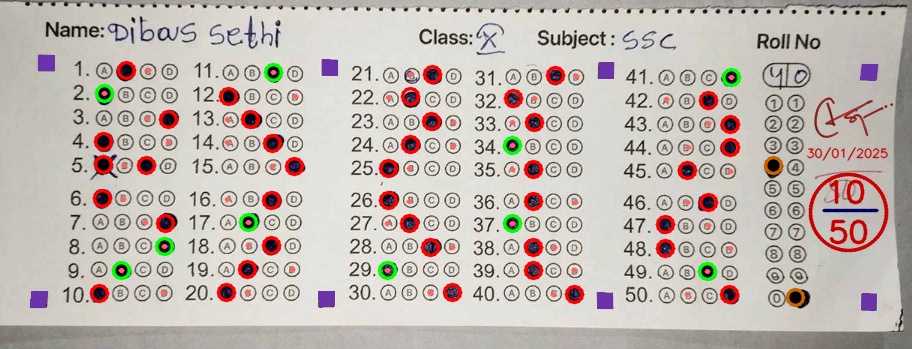 Name: Dibas Sethi
Class: X
Subject: SSC
Roll No
40
1. A B C D
2. A B C D
3. A B C D
4. A B C D
5. A B C D
6. A B C D
7. A B C D
8. A B C D
9. A B C D
10. A B C D
11. A B C D
12. A B C D
13. A B C D
14. A B C D
15. A B C D
16. A B C D
17. A B C D
18. A B C D
19. A B C D
20. A B C D
21. A B C D
22. A B C D
23. A B C D
24. A B C D
25. A B C D
26. A B C D
27. A B C D
28. A B C D
29. A B C D
30. A B C D
31. A B C D
32. A B C D
33. A B C D
34. A B C D
35. A B C D
36. A B C D
37. A B C D
38. A B C D
39. A B C D
40. A B C D
41. A B C D
42. A B C D
43. A B C D
44. A B C D
45. A B C D
46. A B C D
47. A B C D
48. A B C D
49. A B C D
50. A B C D
1 1
2 2
3 3
4
5 5
6 6
7 7
8 8
9 9
0
30/01/2025
10
50